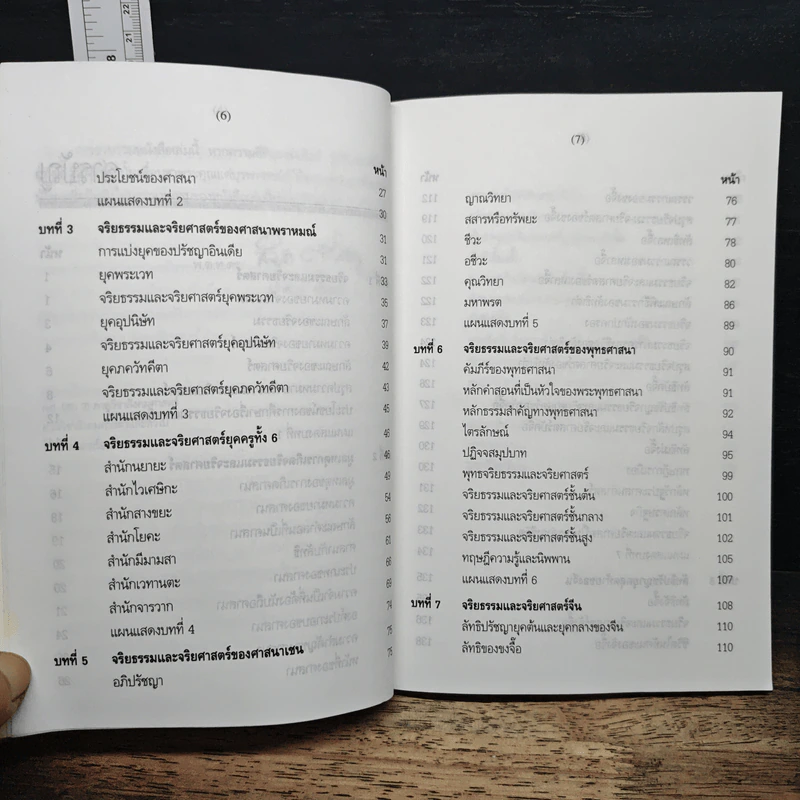 (6)
หน้า
ประโยชน์ของศาสนา 27
แผนแสดงบทที่ 2 30
บทที่ 3 จริยธรรมและจริยศาสตร์ของศาสนาพราหมณ์ 31
การแบ่งยุคของปรัชญาอินเดีย 31
ยุคพระเวท 33
จริยธรรมและจริยศาสตร์ยุคพระเวท 35
ยุคอุปนิษัท 37
จริยธรรมและจริยศาสตร์ยุคอุปนิษัท 39
ยุคภควัทคีตา 42
จริยธรรมและจริยศาสตร์ยุคภควัทคีตา 43
แผนแสดงบทที่ 3 45
บทที่ 4 จริยธรรมและจริยศาสตร์ยุคครูทั้ง 6 46
สำนักนยายะ 46
สำนักไวเศษิกะ 49
สำนักสางขยะ 54
สำนักโยคะ 56
สำนักมีมามสา 61
สำนักเวทานตะ 66
สำนักจารวาก 69
แผนแสดงบทที่ 4 74
บทที่ 5 จริยธรรมและจริยศาสตร์ของศาสนาเชน 75
อภิปรัชญา 75
(7)
หน้า
ญาณวิทยา 76
สสารหรือทรัพยะ 77
ชีวะ 78
อชีวะ 80
คุณวิทยา 82
มหาพรต 86
แผนแสดงบทที่ 5 89
บทที่ 6 จริยธรรมและจริยศาสตร์ของพุทธศาสนา 90
คัมภีร์ของพุทธศาสนา 91
หลักคำสอนที่เป็นหัวใจของพระพุทธศาสนา 91
หลักธรรมสำคัญทางพุทธศาสนา 92
ไตรลักษณ์ 94
ปฏิจจสมุปบาท 95
พุทธจริยธรรมและจริยศาสตร์ 99
จริยธรรมและจริยศาสตร์ชั้นต้น 100
จริยธรรมและจริยศาสตร์ชั้นกลาง 101
จริยธรรมและจริยศาสตร์ชั้นสูง 102
ทฤษฎีความรู้และนิพพาน 105
แผนแสดงบทที่ 6 107
บทที่ 7 จริยธรรมและจริยศาสตร์จีน 108
ลัทธิปรัชญายุคต้นและยุคกลางของจีน 110
ลัทธิของขงจื๊อ 110